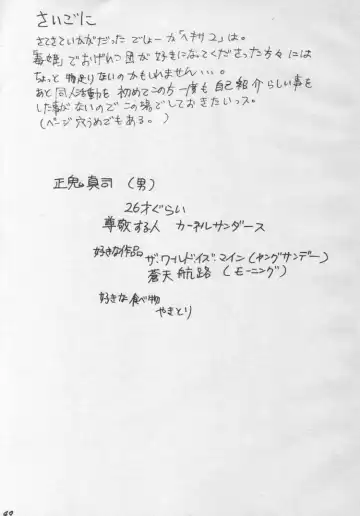 さいごに
さてさていかがだったでしょーか「ヘキサ2」は。
毒娘」でおげれつ団が好きになってくださった方々には
ちょっと物足りないのかもしれません…。
あと同人活動を初めてこの方一度も自己紹介らしい事を
した事がないのでこの場でしておきたいっス。
(ページ穴うめでもある。)
正鬼真司 (男)
26才ぐらい
尊敬する人 カーネルサンダース
好きな作品 ザ・ワールドイズ・マイン(ヤングサンデー)
蒼天航路 (モーニング)
好きな食べ物
やきとり